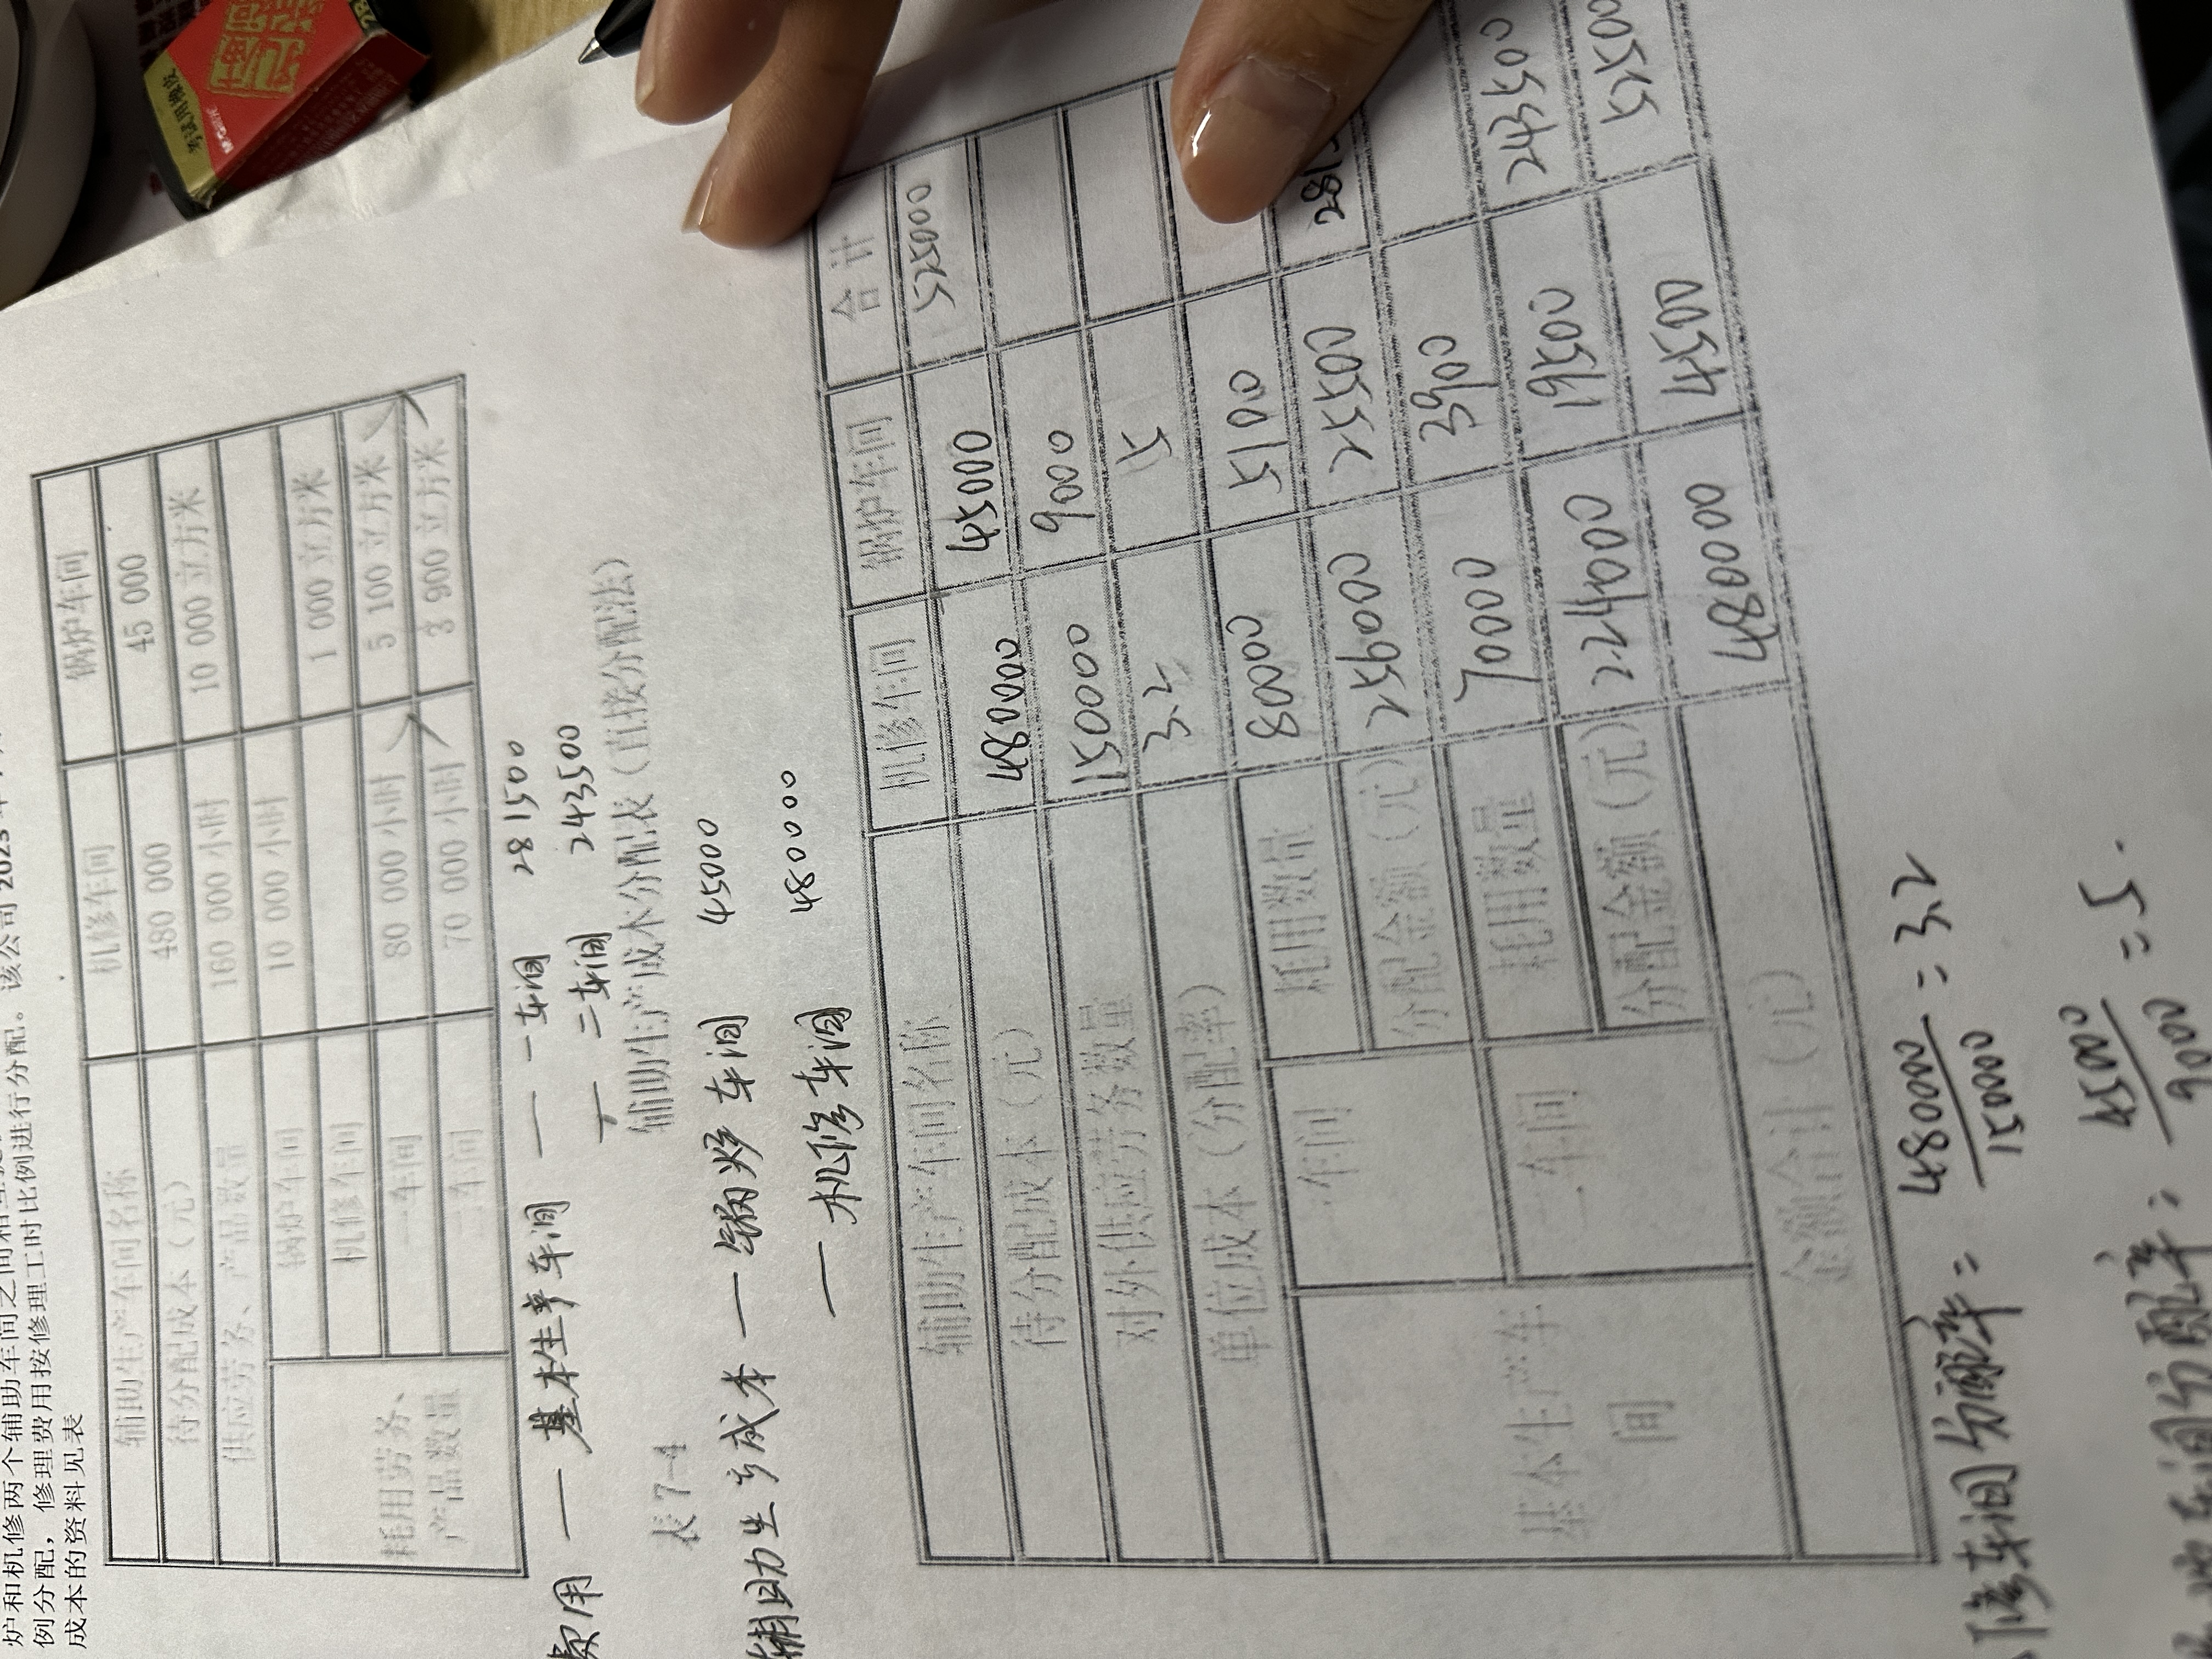 炉和机修两个辅助车间之间相互提
例分配，修理费用按修理工时比例进行分配。该公司 2023 年
成本的资料见表
辅助生产车间名称 机修车间 锅炉车间
待分配成本（元） 480 000 45 000
供应劳务、产品数量 160 000 小时 10 000 立方米
耗用劳务、产品数量 锅炉车间 10 000 小时
机修车间 1 000 立方米
一车间 80 000 小时 5 100 立方米
二车间 70 000 小时 3 900 立方米
费用 — 基本生产车间 — 一车间 281500
— 二车间 243500
表 7-4 辅助生产成本分配表（直接分配法）
辅助生产成本 — 锅炉车间 45000
— 机修车间 480000
辅助生产车间名称 机修车间 锅炉车间 合计
待分配成本（元） 480000 45000 525000
对外供应劳务数量 150000 9000
单位成本（分配率） 3.2 5
基本生产车间 一车间 耗用数量 80000 5100
分配金额（元） 256000 25500 281
二车间 耗用数量 70000 3900
分配金额（元） 224000 19500 243500
金额合计（元） 480000 4500 52500
修车间分配率 = 480000/150000 = 3.2
车间分配率 = 45000/9000 = 5.